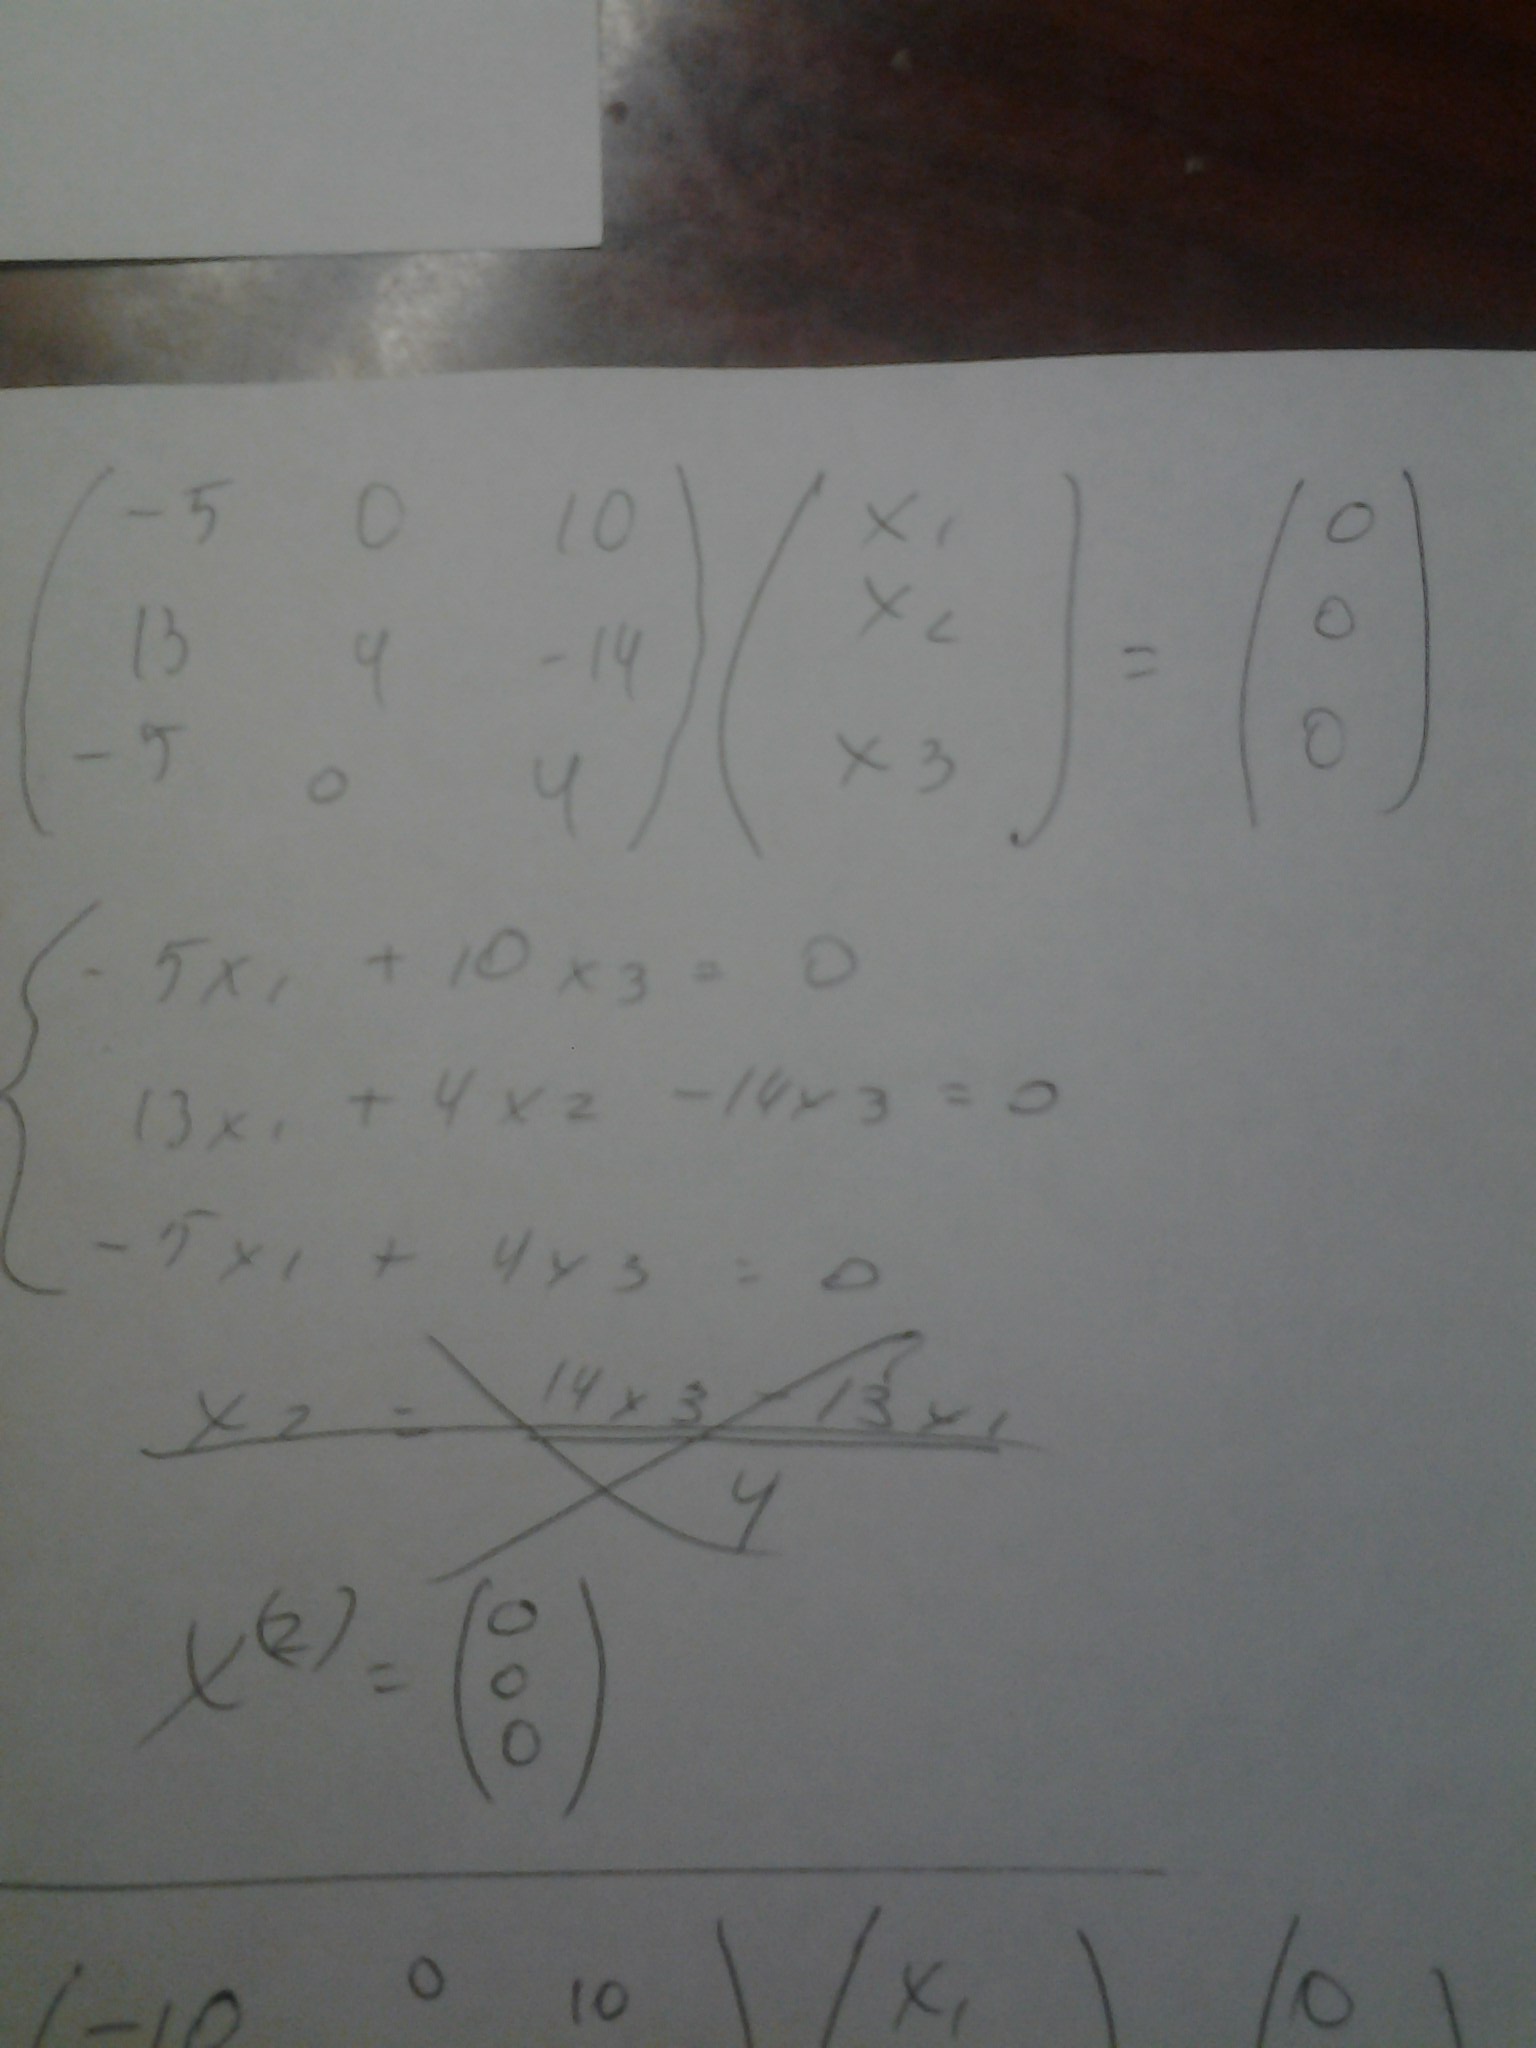 -5 0 10 x1 0
13 4 -14 x2 = 0
-5 0 4 x3 0
-5x1 + 10x3 = 0
13x1 + 4x2 -14x3 = 0
-5x1 + 4x3 = 0
x2 = 14x3 - 13x1
4
x(2) = 0
0
0
-10 0 10 x1 0